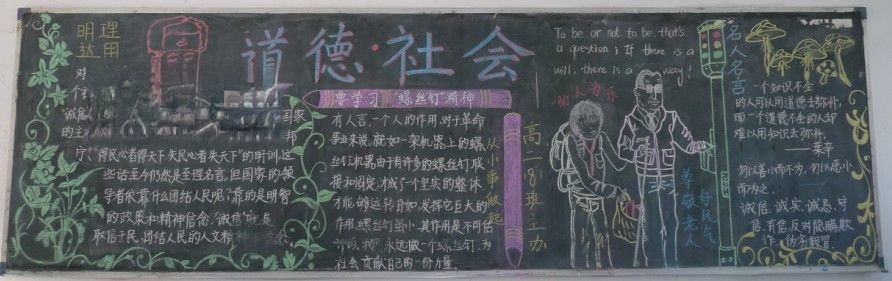 明理
达用
道德·社会
对
个
诚信
的主
国家
邦
宁“得民心者得天下失民心者失天下”的时训,这
些话至今仍然是至理名言,但国家的领
导者依靠什么团结人民呢?靠的是明智
的政策和精神信念,“诚信”就是
取信于民,团结人民的人文精
要学习“螺丝钉”精神
有人言,一个人的作用,对于革命
事业来说,就如一架机器上的螺
丝钉,机器由于有许多的螺丝钉联
接和固定,才成了个坚实的整体,
才能够运转自如,发挥它巨大的
作用,螺丝钉虽小,其作用是不可估
永远做一个螺丝钉,为
社会贡献自己的一份力量。
从小事做起
高二(8)班主办
To be or not to be, that's
a question; If there is a
will, there is a way!
助人为乐
尊敬老人
好风气
名人名言
一个知识不全
的人可以用道德去弥补,
而一个道德不全的人却
难以用知识去弥补。
勿以善小而不为,勿以恶小
而为之。
诚信、诚实、诚恳、守
信、有信,反对隐瞒欺
诈、伪劣